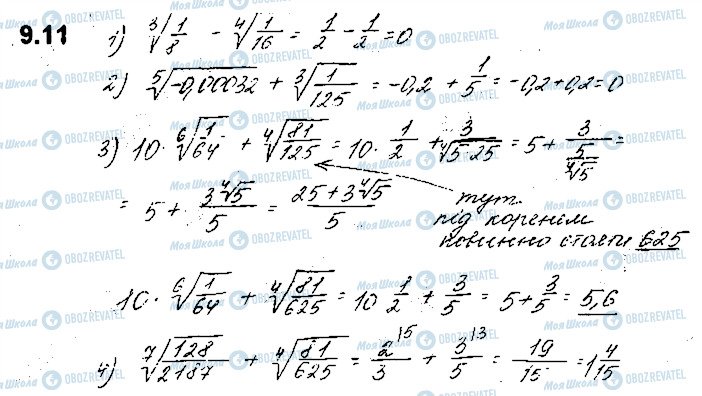 9.11 1) ∛(1/8) - ⁴√(1/16) = 1/2 - 1/2 = 0
2) ⁵√(-0,00032) + ∛(1/125) = -0,2 + 1/5 = -0,2+0,2=0
3) 10 · ⁶√(1/64) + ⁴√(81/125) = 10 · 1/2 + 3/⁴√(5·25) = 5 + 3/(5/⁴√5) =
= 5 + 3⁴√5/5 = (25 + 3⁴√5)/5
тут
під коренем
повинно стояти 625
10 · ⁶√(1/64) + ⁴√(81/625) = 10 1/2 + 3/5 = 5 + 3/5 = 5,6
4) ⁷√(128/2187) + ⁴√(81/625) = 2\5/3 + 3\3/5 = 19/15 = 1 4/15